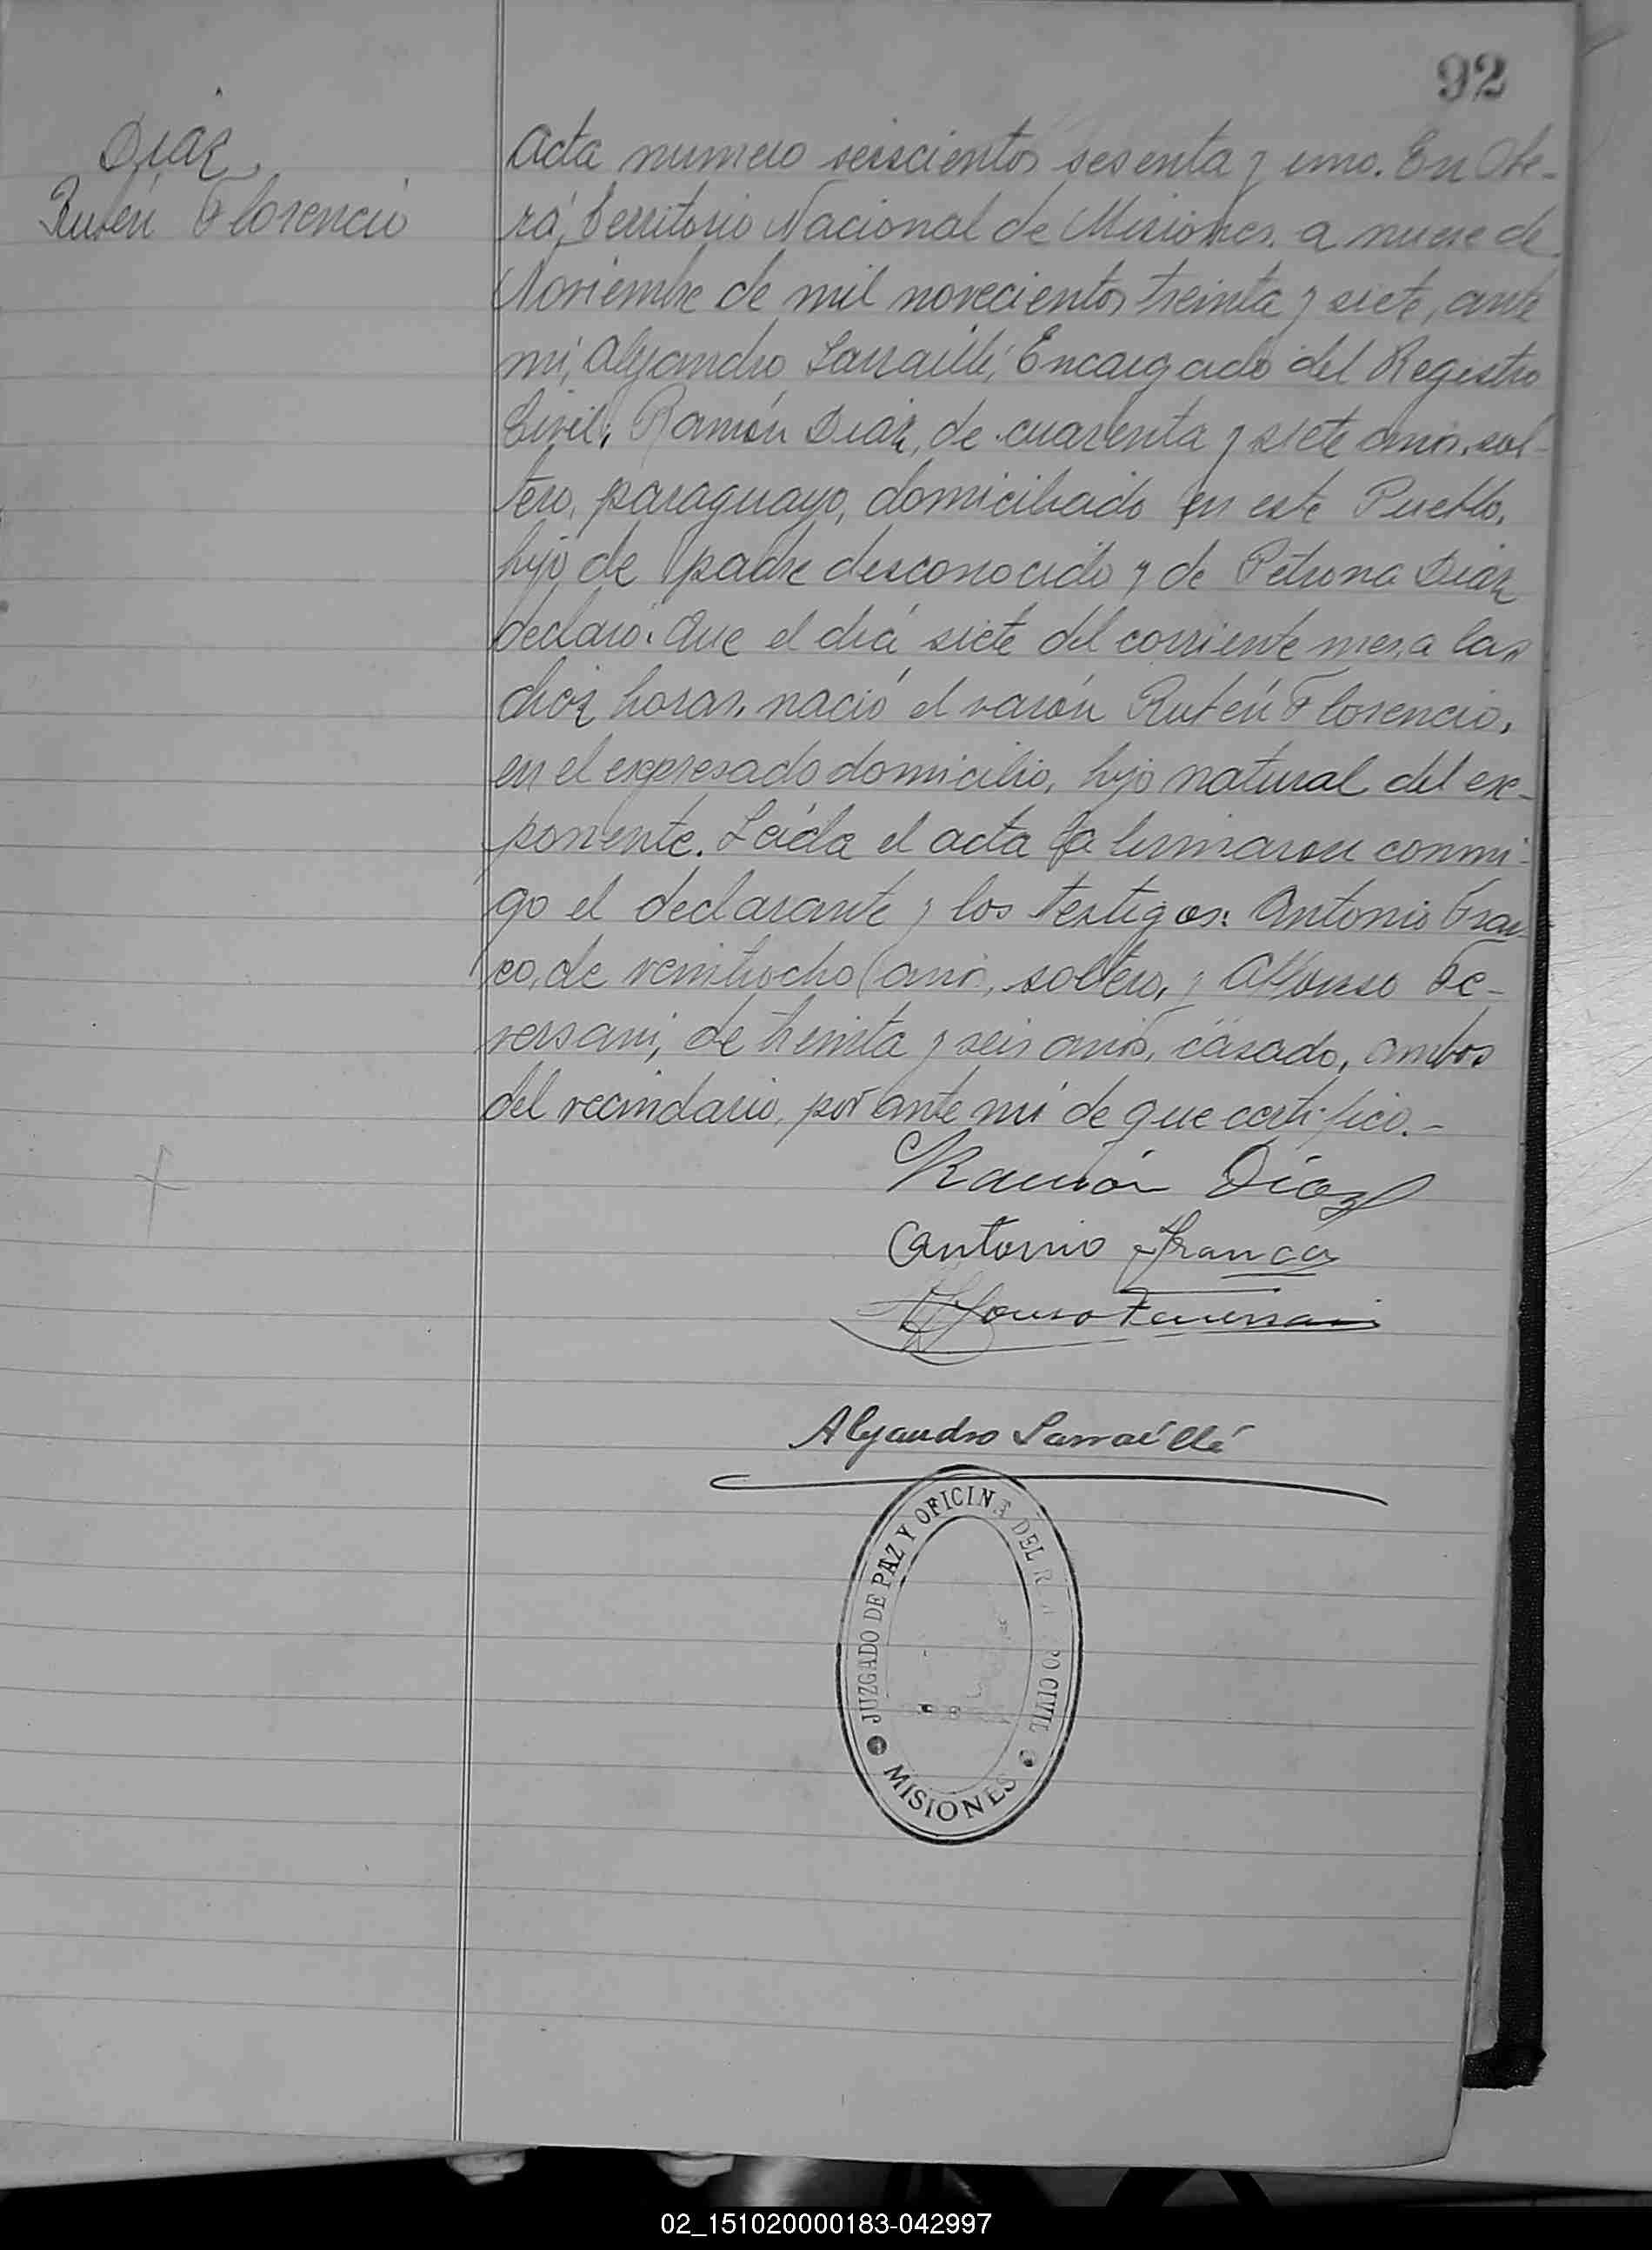 92
Diaz
Rubén Florencio
Acta numero seiscientos sesenta y uno. En Obe-
rá, Territorio Nacional de Misiones, a nueve de
Noviembre de mil novecientos treinta y siete, ante
mi, Alejandro Sarraillé, Encargado del Registro
Civil, Ramón Diaz, de cuarenta y siete años, sol-
tero, paraguayo, domiciliado en este Pueblo,
hijo de padre desconocido y de Petrona Diaz
declaró: Que el diá siete del corriente mes, a las
diez horas, nació el varón Rubén Florencio,
en el expresado domicilio, hijo natural del ex-
ponente. Leida el acta la firmaron conmi-
go el declarante y los testigos: Antonio Fran
co, de veintiocho años, soltero, y Alfonso Fe-
versani, de treinta y seis años, casado, ambos
del vecindario, por ante mi de que certifico.-
Ramón Díaz
Antonio Franco
Alfonso Feversani
Alejandro Sarraillé
JUZGADO DE PAZ Y OFICINA DEL R CIVIL
MISIONES
02_151020000183-042997